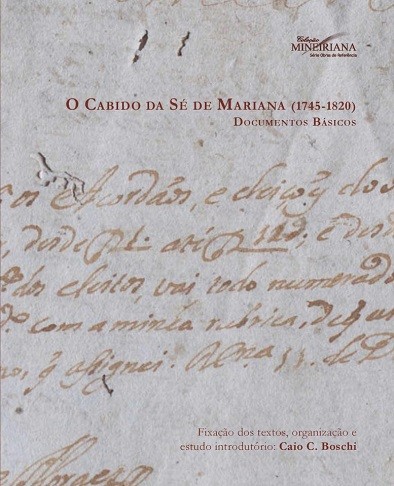 Coleção
MINEIRIANA
Série Obras de Referência
O CABIDO DA SÉ DE MARIANA (1745-1820)
DOCUMENTOS BÁSICOS
os Acordãos, e eleiçoẽs dos
, desde f. 1. até f. 220, e desd
dos eleitos, vai todo numerado
com a minha rubrica, de q uz
, q asignei.
Fixação dos textos, organização e
estudo introdutório: Caio C. Boschi